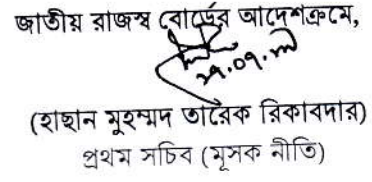 জাতীয় রাজস্ব বোর্ডের আদেশক্রমে,
(হাছান মুহম্মদ তারেক রিকাবদার)
প্রথম সচিব (মূসক নীতি)